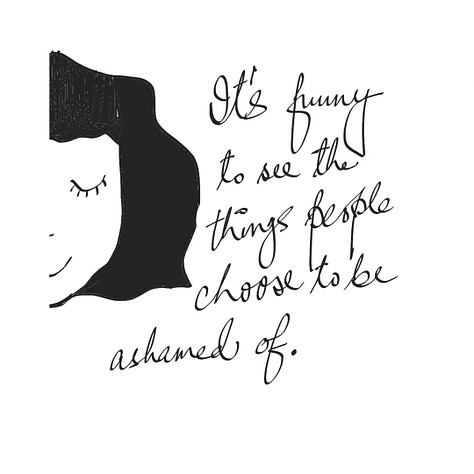 It's funny
to see the
things people
choose to be
ashamed of.